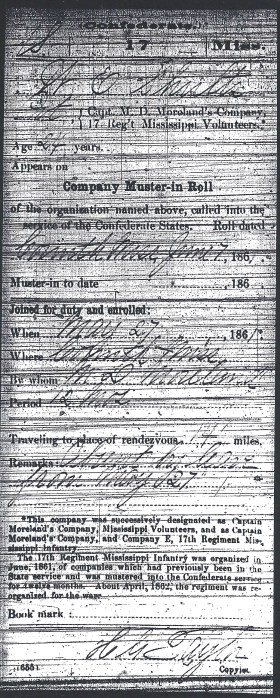 Confederate.
S 17 Miss.
W C
Capt. M. D. Moreland's Company,
17 Reg't Mississippi Volunteers.*
Age 24 years.
Appears on
Company Muster-in Roll
of the organization named above, called into the
service of the Confederate States. Roll dated
Corinth Miss, June 7, 186
Muster-in to date , 186
Joined for duty and enrolled:
When May 27, 1861
Where Corinth Miss
By whom M. D. Moreland
Period 12 mos
Traveling to place of rendezvous miles.
Remarks:
from May 27
*This company was successively designated as Captain
Moreland's Company, Mississippi Volunteers, and as Captain
Moreland's Company, and Company E, 17th Regiment Mis-
sissippi Infantry.
The 17th Regiment Mississippi Infantry was organized in
June, 1861, of companies which had previously been in the
State service and was mustered into the Confederate service
for twelve months. About April, 1862, the regiment was re-
organized for the war.
Book mark:
Taylor
Copyist.